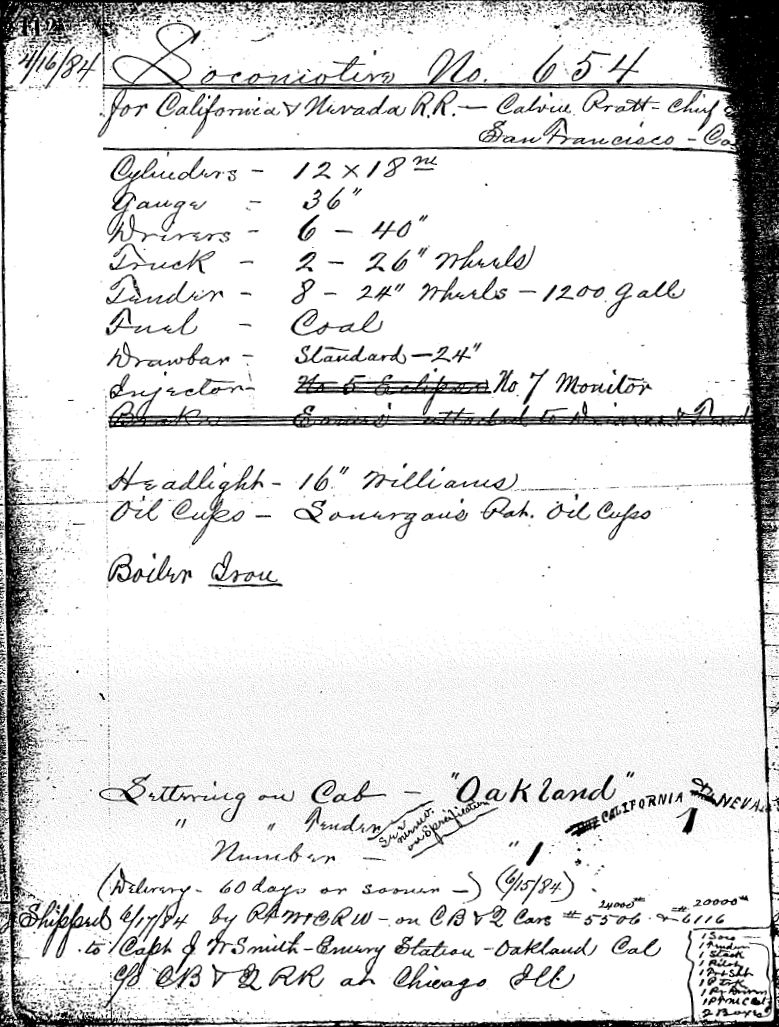 112
4/16/84 Locomotive No. 654
for California & Nevada R.R. — Calvin Pratt - Chief
San Francisco - Ca
Cylinders - 12 x 18 in
Gauge - 36"
Drivers - 6 - 40"
Truck - 2 - 26" Wheels
Tender - 8 - 24" Wheels - 1200 Gall
Fuel - Coal
Drawbar - Standard - 24"
Injector - No 5 Eclipse No. 7 Monitor
Brake Eames attached to Drivers & Tend
Headlight - 16" Williams
Oil Cups - Lonergan's Pat. Oil Cups
Boiler Iron
Lettering on Cab - "Oakland"
" " Tender CALIFORNIA & NEVADA
on Specification
1
Number - "1
(Delivery - 60 days or sooner -) (6/15/84)
24000 20000
Shipped 6/17/84 by - on CB & Q Cars # 5506 & # 6116
to Capt J W Smith - Emery Station - Oakland Cal
c/o CB & Q RR at Chicago Ill
1 Loco
1 Tender
1 Stack
1 Pilot
2 Boxes